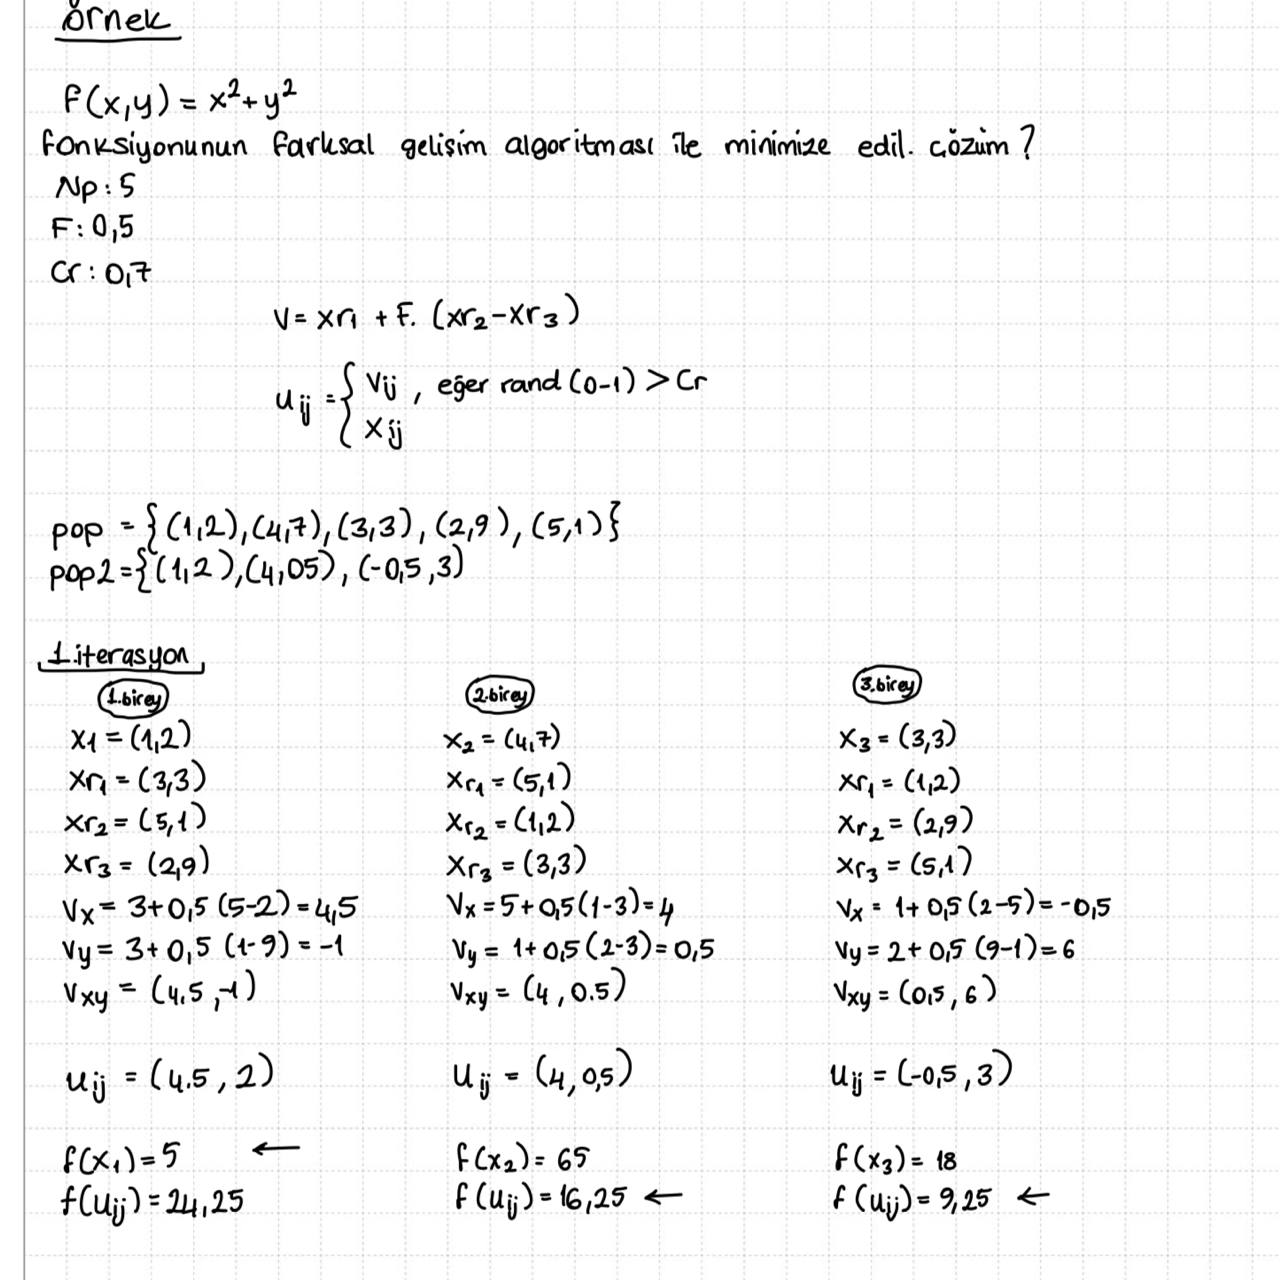 örnek
f(x,y) = x²+y²
fonksiyonunun farksal gelişim algoritması ile minimize edil. çözüm?
Np: 5
F: 0,5
Cr: 0,7
V = xr₁ + F. (xr₂-xr₃)
uij = { Vij , eğer rand (0-1) > Cr
xij
pop = {(1,2),(4,7),(3,3),(2,9),(5,1)}
pop2={(1,2),(4,05),(-0,5,3)
1.iterasyon
1.birey
x1 = (1,2)
xr₁ = (3,3)
xr₂ = (5,1)
xr₃ = (2,9)
Vx = 3+0,5 (5-2) = 4,5
Vy = 3+0,5 (1-9) = -1
Vxy = (4.5,-1)
uij = (4.5, 2)
f(x₁) = 5 ←
f(uij) = 24,25
2.birey
x₂ = (4,7)
xr₁ = (5,1)
xr₂ = (1,2)
xr₃ = (3,3)
Vx = 5+0,5(1-3)=4
Vy = 1+0,5(2-3)=0,5
Vxy = (4, 0.5)
uij = (4, 0,5)
f(x₂) = 65
f(uij) = 16,25 ←
3.birey
x₃ = (3,3)
xr₁ = (1,2)
xr₂ = (2,9)
xr₃ = (5,1)
Vx = 1+0,5(2-5) = -0,5
Vy = 2+0,5 (9-1)=6
Vxy = (0,5, 6)
uij = (-0,5, 3)
f(x₃) = 18
f(uij) = 9,25 ←